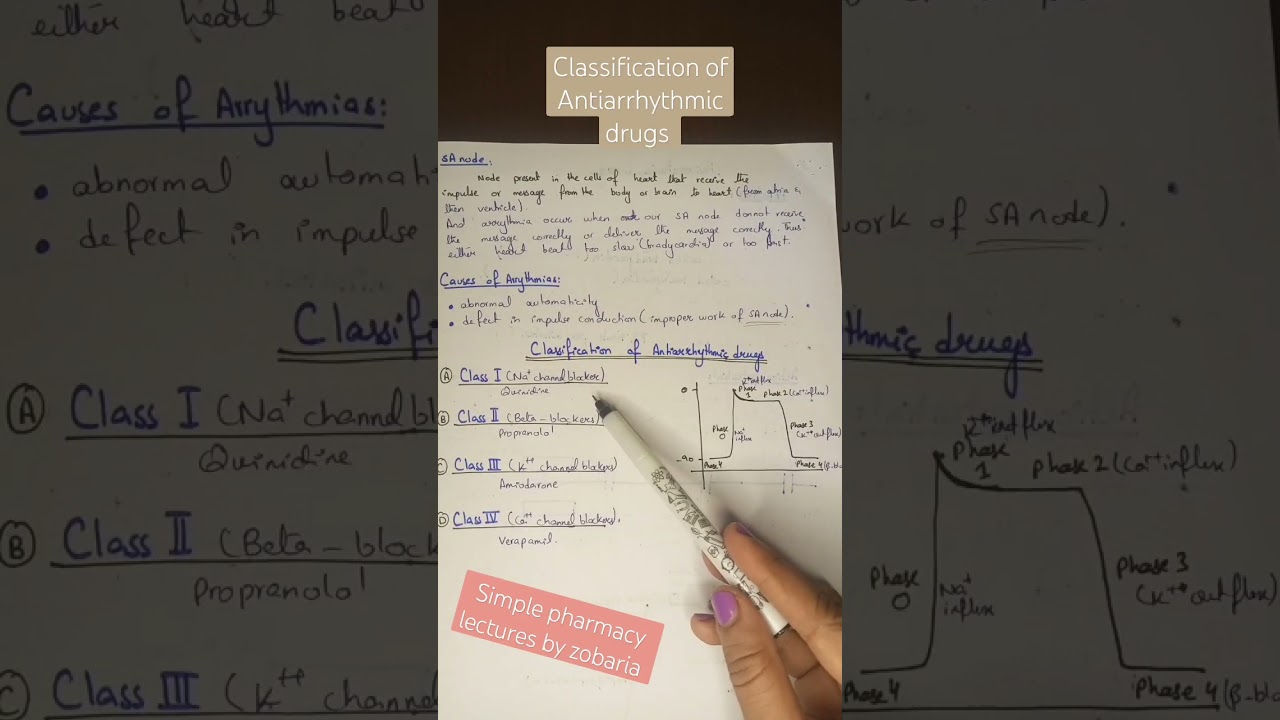 Classification of
Antiarrhythmic
drugs
SA node:
Node present in the cells of heart that receive the
impulse or message from the body or brain to heart (from atria &
then ventricle).
And arrythmia occur when our SA node donnot receive
the message correctly or deliver the message correctly. Thus
either heart beat too slow (bradycardia) or too fast.
Causes of Arrythmias:
• abnormal automaticity
• defect in impulse conduction (improper work of SA node).
Classification of Antiarrhythmic drugs
A Class I (Na+ channel blocker)
Quinidine
B Class II (Beta-blockers)
Propranolol
C Class III (K++ channel blockers)
Amiodarone
D Class IV (Ca++ channel blockers).
Verapamil.
0
K++ outflux
Phase
1
Phase 2 (Ca++ influx)
Phase
0
Na+
influx
Phase 3
(K++ outflux)
-90
Phase 4
Phase 4 (β-blo
Simple pharmacy
lectures by zobaria
either heart beat
Causes of Arrythmias:
• abnormal automati
• defect in impulse
Classifi
A Class I (Na+ channel b
Quinidine
B Class II (Beta-block
Propranolol
C Class III (K++ channel
work of SA node).
thmic drugs
K++ outflux
Phase
1
Phase 2 (Ca++ influx)
Phase
0
Na+
influx
Phase 3
(K++ outflux)
Phase 4
Phase 4 (β-blo